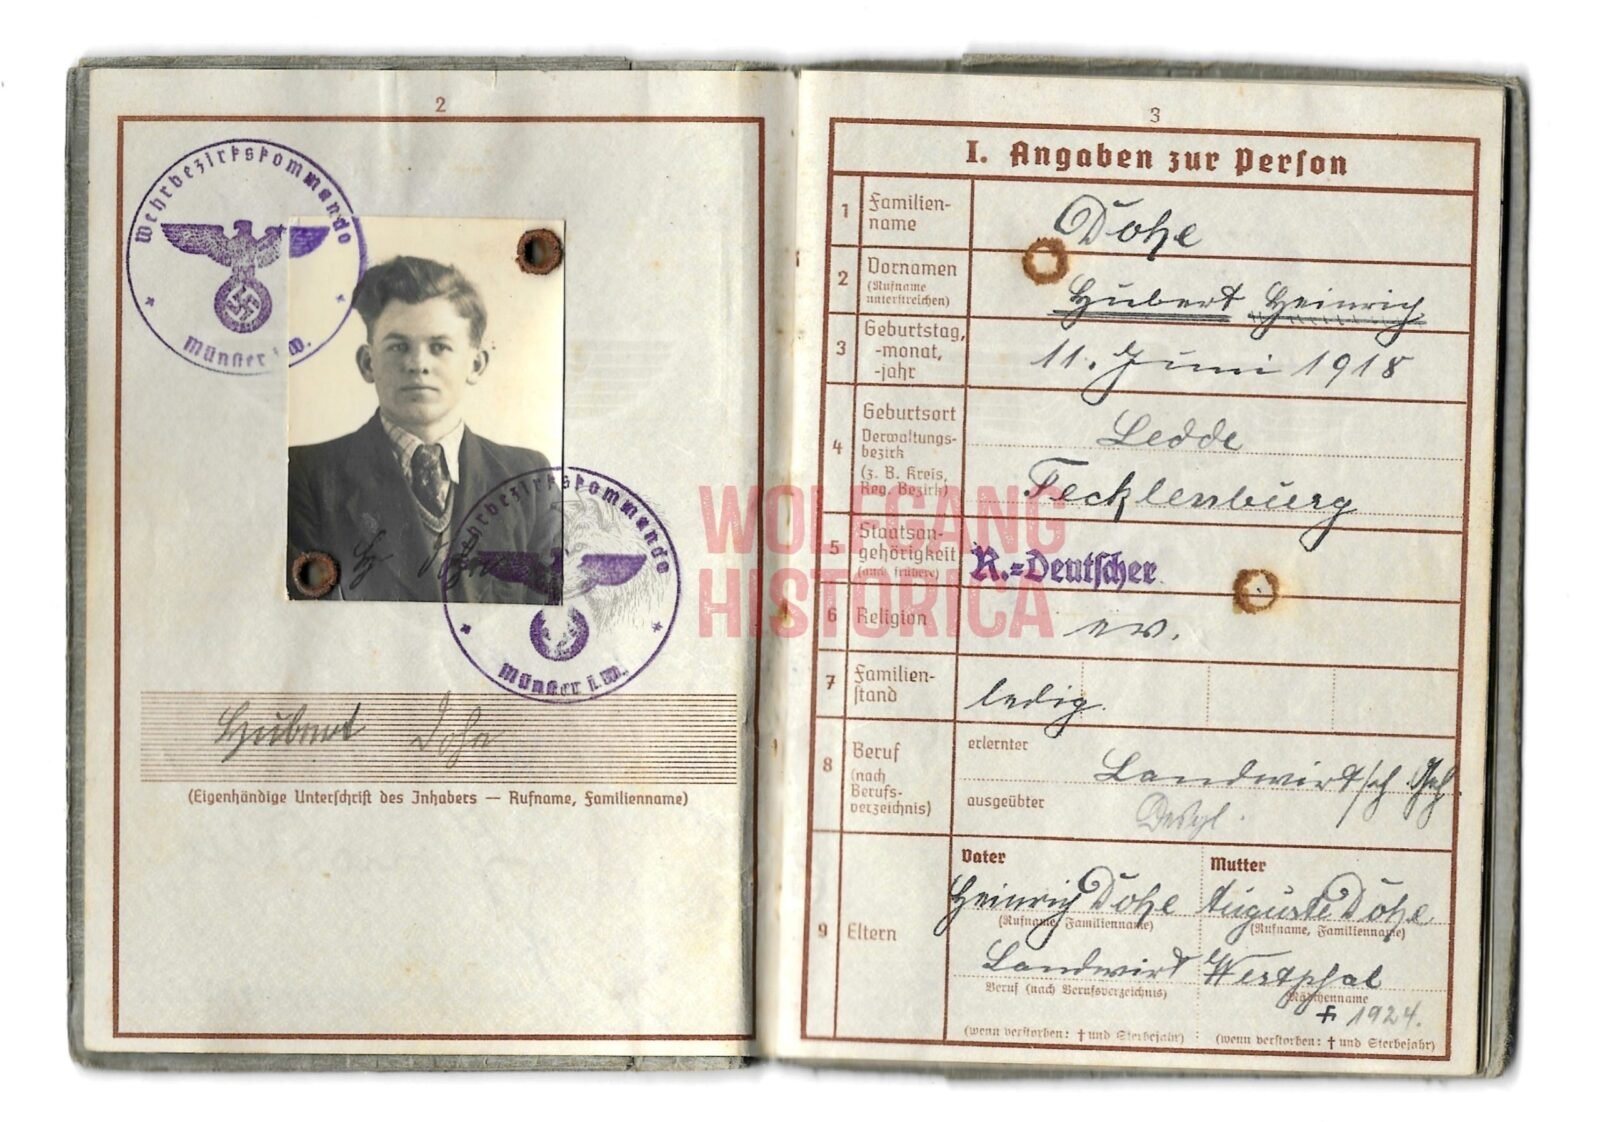 2
Wehrbezirkskommando
Münster i. W.
Wehrbezirkskommando
Münster i. W.
Hubert Dohe
(Eigenhändige Unterschrift des Inhabers — Rufname, Familienname)
WOLFGANG
HISTORICA
3
I. Angaben zur Person
1 Familien-
name
Dohe
2 Vornamen
(Rufname
unterstreichen)
Hubert Heinrich
3 Geburtstag,
-monat,
-jahr
11. Juni 1918
4 Geburtsort
Verwaltungs-
bezirk
(z. B. Kreis,
Reg. Bezirk)
Ledde
Tecklenburg
5 Staatsan-
gehörigkeit
(auch frühere)
R.=Deutscher
6 Religion
ev.
7 Familien-
stand
ledig.
8 Beruf
(nach
Berufs-
verzeichnis)
erlernter
Landwirtsch
ausgeübter
Desgl.
9 Eltern
Vater
Mutter
Heinrich Dohe
Auguste Dohe
(Rufname, Familienname)
(Rufname, Familienname)
Landwirt
Westphal
Beruf (nach Berufsverzeichnis)
Mädchenname
1924.
(wenn verstorben: † und Sterbejahr)
(wenn verstorben: † und Sterbejahr)